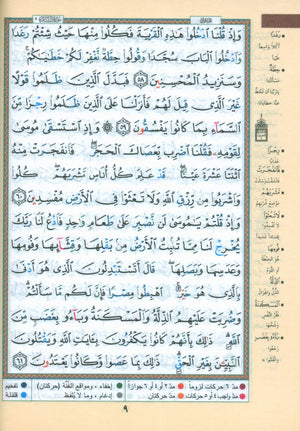 وَإِذْ قُلْنَا ٱدْخُلُوا۟ هَٰذِهِ ٱلْقَرْيَةَ فَكُلُوا۟ مِنْهَا حَيْثُ شِئْتُمْ رَغَدًا
وَٱدْخُلُوا۟ ٱلْبَابَ سُجَّدًا وَقُولُوا۟ حِطَّةٌ نَّغْفِرْ لَكُمْ خَطَٰيَٰكُمْ
وَسَنَزِيدُ ٱلْمُحْسِنِينَ ٥٨ فَبَدَّلَ ٱلَّذِينَ ظَلَمُوا۟ قَوْلًا
غَيْرَ ٱلَّذِى قِيلَ لَهُمْ فَأَنزَلْنَا عَلَى ٱلَّذِينَ ظَلَمُوا۟ رِجْزًا مِّنَ
ٱلسَّمَآءِ بِمَا كَانُوا۟ يَفْسُقُونَ ٥٩ وَإِذِ ٱسْتَسْقَىٰ مُوسَىٰ
لِقَوْمِهِۦ فَقُلْنَا ٱضْرِب بِّعَصَاكَ ٱلْحَجَرَ فَٱنفَجَرَتْ مِنْهُ
ٱثْنَتَا عَشْرَةَ عَيْنًا قَدْ عَلِمَ كُلُّ أُنَاسٍ مَّشْرَبَهُمْ كُلُوا۟
وَٱشْرَبُوا۟ مِن رِّزْقِ ٱللَّهِ وَلَا تَعْثَوْا۟ فِى ٱلْأَرْضِ مُفْسِدِينَ ٦٠
وَإِذْ قُلْتُمْ يَٰمُوسَىٰ لَن نَّصْبِرَ عَلَىٰ طَعَامٍ وَٰحِدٍ فَٱدْعُ لَنَا رَبَّكَ
يُخْرِجْ لَنَا مِمَّا تُنۢبِتُ ٱلْأَرْضُ مِنۢ بَقْلِهَا وَقِثَّآئِهَا وَفُومِهَا
وَعَدَسِهَا وَبَصَلِهَا قَالَ أَتَسْتَبْدِلُونَ ٱلَّذِى هُوَ أَدْنَىٰ
بِٱلَّذِى هُوَ خَيْرٌ ٱهْبِطُوا۟ مِصْرًا فَإِنَّ لَكُم مَّا سَأَلْتُمْ
وَضُرِبَتْ عَلَيْهِمُ ٱلذِّلَّةُ وَٱلْمَسْكَنَةُ وَبَآءُو بِغَضَبٍ مِّنَ
ٱللَّهِ ذَٰلِكَ بِأَنَّهُمْ كَانُوا۟ يَكْفُرُونَ بِـَٔايَٰتِ ٱللَّهِ وَيَقْتُلُونَ
ٱلنَّبِيِّـۧنَ بِغَيْرِ ٱلْحَقِّ ذَٰلِكَ بِمَا عَصَوا۟ وَّكَانُوا۟ يَعْتَدُونَ ٦١
رَغَدًا
حِطَّةٌ
رِجْزًا
فَٱنفَجَرَتْ
مَّشْرَبَهُمْ
فُومِهَا
ٱلْمَسْكَنَةُ
مدّ ٦ حركات لزوماً مدّ ٢ أو ٤ أو ٦ جوازاً إخفاء، ومواقع الغنّة (حركتان) تفخيم
مدّ واجب ٤ أو ٥ حركات مدّ حركتان إدغام، وما لا يُلفظ قلقلة
٩